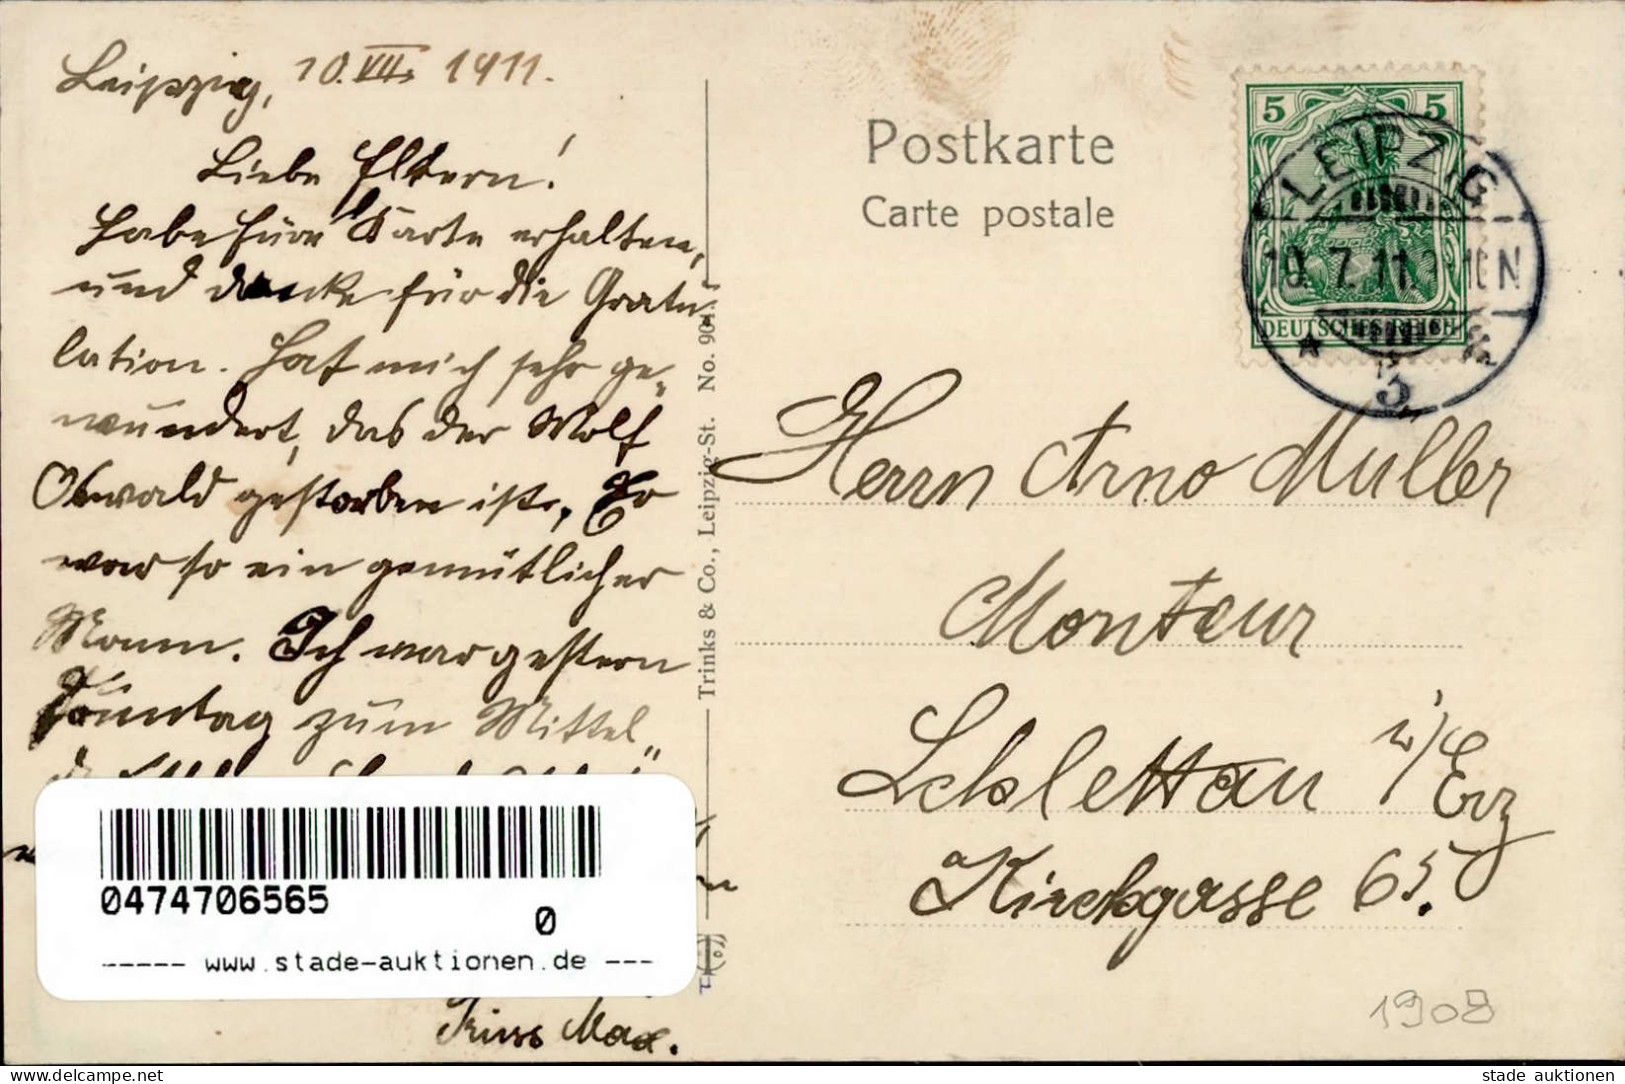 Leipzig, 10.VII. 1911.
Liebe Eltern!
Habe Eure Karte erhalten,
und danke für die Gratu-
lation. Hat mich sehr ge-
wundert, das der Wolf
Oswald gestorben ist. Er
war so ein gemütlicher
Mann. Ich war gestern
Sonntag zum Mittel
Gruss Max.
Trinks & Co., Leipzig-St. No. 904.
Postkarte
Carte postale
5 5
DEUTSCHES REICH
LEIPZIG
10.7.11. N
* 3 *
Herrn Arno Müller
Monteur
Schlettau i/Erz
Kirchgasse 65.
1908
0474706565
0
----- www.stade-auktionen.de ---
www.delcampe.net
stade auktionen